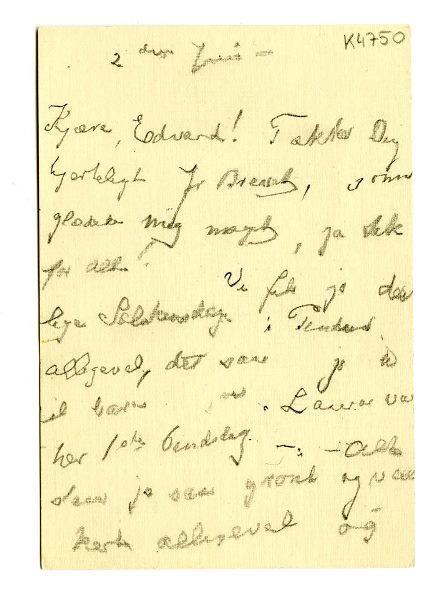 K4750
2 den Juni –
Kjære, Edvard! Takker Dig
hjerteligt for Brevet, som
glædede mig meget, ja tak
for alt! Vi fik jo dei
lige Solskinsdage i Pindsen
alligevel, det var jo
Laura var
her 1ste Pindsdag –:– Alt
var jo saa grønt og vak
kert alligevel og